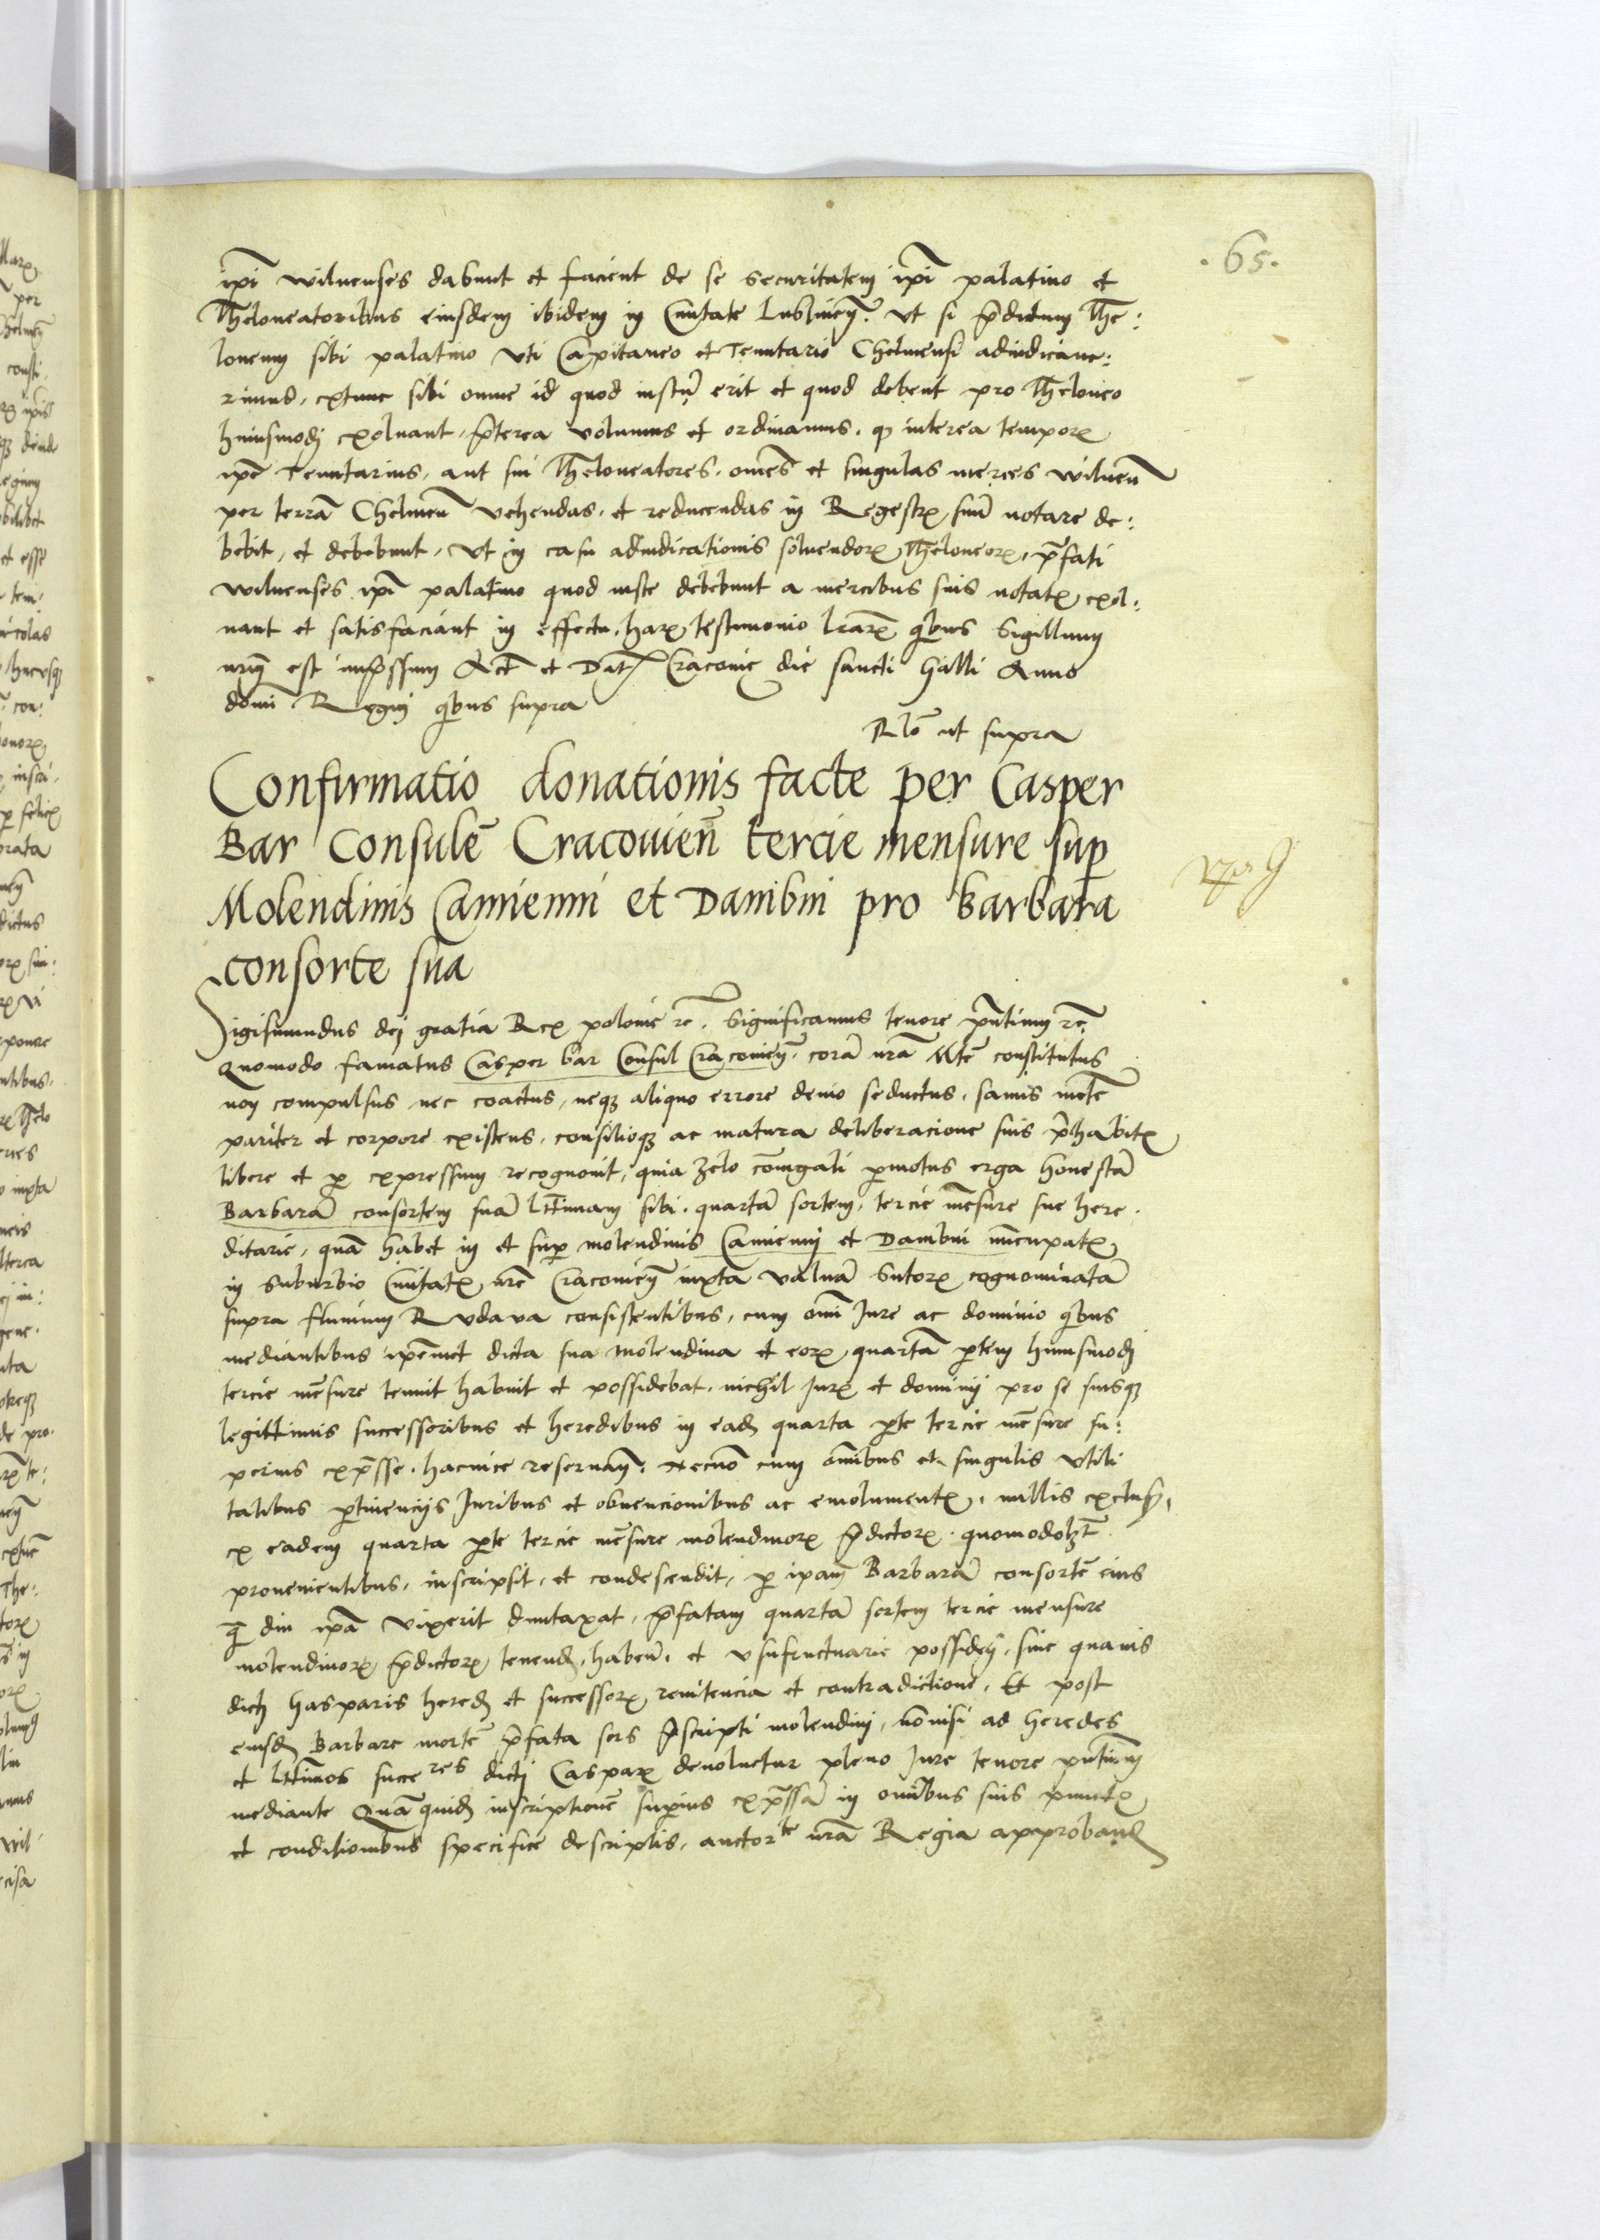 .65.
ip̄i wilnenses dabunt et facient de se securitatem ip̄i palatino et
Theloneatoribus eiusdem ibidem in Ciuitate Lubliney̅. vt si p̄dictum The:
loneum sibi palatino vti Capitaneo et Tenutario Chelmensi adiudicaue:
rimus, extunc sibi omne id quod iustu̅ erit et quod debent pro Theloneo
huiusmodi exoluant, p̄terea volumus et ordinamus. q̛ interea temporꝭ
ip̄e Tenutarius, aut sui Theloneatores, om̄es et singulas merces wilnen̅
per terra̅ Chelmen̅ vehendas, et reducendas in Regestrꝭ suu̅ notare de:
bebit, et debebunt, vt in casu adiudicationis soluendorꝭ Theloneorꝭ, p̄fati
wilnenses ip̄i palatino quod iuste debebunt a mercibus suis notatꝭ exol:
uant et satisfaciant in effectu, harꝭ testimonio lr̄arꝭ q̇bus Sigillum
nr̄m est imp̄ssum Act̅ et Datꝭ Cracouie die sancti Galli Anno
domi̅ Regni q̇bus supra
Rlō ut supra
Confirmatio donationis facte per Casper
Bar Consule̅ Cracouien̅ tercie mensure sup̱
Molendinis Camienni et Dambni pro barbara
consorte sua
Sigismundus dei gratia Rex polonie rē. Significamus tenore pn̄tium rē
Quomodo famatus Casper bar Consul Cracouien̅. cora̅ nr̄a Mte̅ constitutus
non compulsus nec coactus, neqꝫ aliquo errore deuio seductus, sanus me̅te
pariter et corpore existens, consilioqꝫ ac matura deliberacione suis p̄habitꝭ
libere et p̱ expressum recognouit, quia zelo co̅iugali p̱motus erga honesta̅
Barbara̅ consortem sua̅ l̅ttimam sibi, quarta̅ sortem, tercie me̅sure sue here.
ditarie, qua̅ habet in et sup̱ molendinis Camienni et Dambni nu̅cupatꝭ
in Suburbio Ciuitatꝭ nr̄e Cracouien̅ iuxta valua̅ Sutorꝭ cognominata̅
supra fluuium Rudava consistentibus, cum om̄i Iure ac dominio q̇bus
mediantibus ip̄emet dicta sua molendina et eorꝭ quarta̅ p̱tem huiusmodi
tercie me̅sure tenuit habuit et possidebat, nichil Iurꝭ et dominij pro se suisqꝫ
legittimis successoribus et heredibus in ead̅ quarta p̱te tercie me̅sure su:
perius exp̄sse. hacuice reseruan̅. Necno̅ cum om̄ibus et singulis vtili
tatibus p̱tinencijs Iuribus et obuencionibus ac emolumentꝭ, nullis exclusꝭ,
ex eadem quarta p̱te tercie me̅sure molendinorꝭ p̄dictorꝭ quomodolꝫt
prouenientibus, inscripsit, et condescendit, p̱ ipam̅ Barbara̅ consorte̅ eius
q̄ diu ip̄a vixerit dumtaxat, p̄fatam quarta̅ sortem tercie mensure
molendinorꝭ p̄dictorꝭ tenend̅, haben̅, et vsufructuarie possiden̅, sine quauis
dicti Gasparis hered̅ et successorꝭ, renitencia et contradictione, Et post
eiusd̅ Barbare morte̅ p̄fata sors p̄scripti molendini, no̅nisi ad heredes
et l̅ttimos succeres dicti Casparꝭ deuoluetur pleno Iure tenore pn̄tium
mediante Qua̅quid̅ inscriptione̅ sup̱ius exp̄ssa̅ in om̄ibus suis punctꝭ
et conditionibus specifice descriptis, auctorte nr̄a Regia approband̅